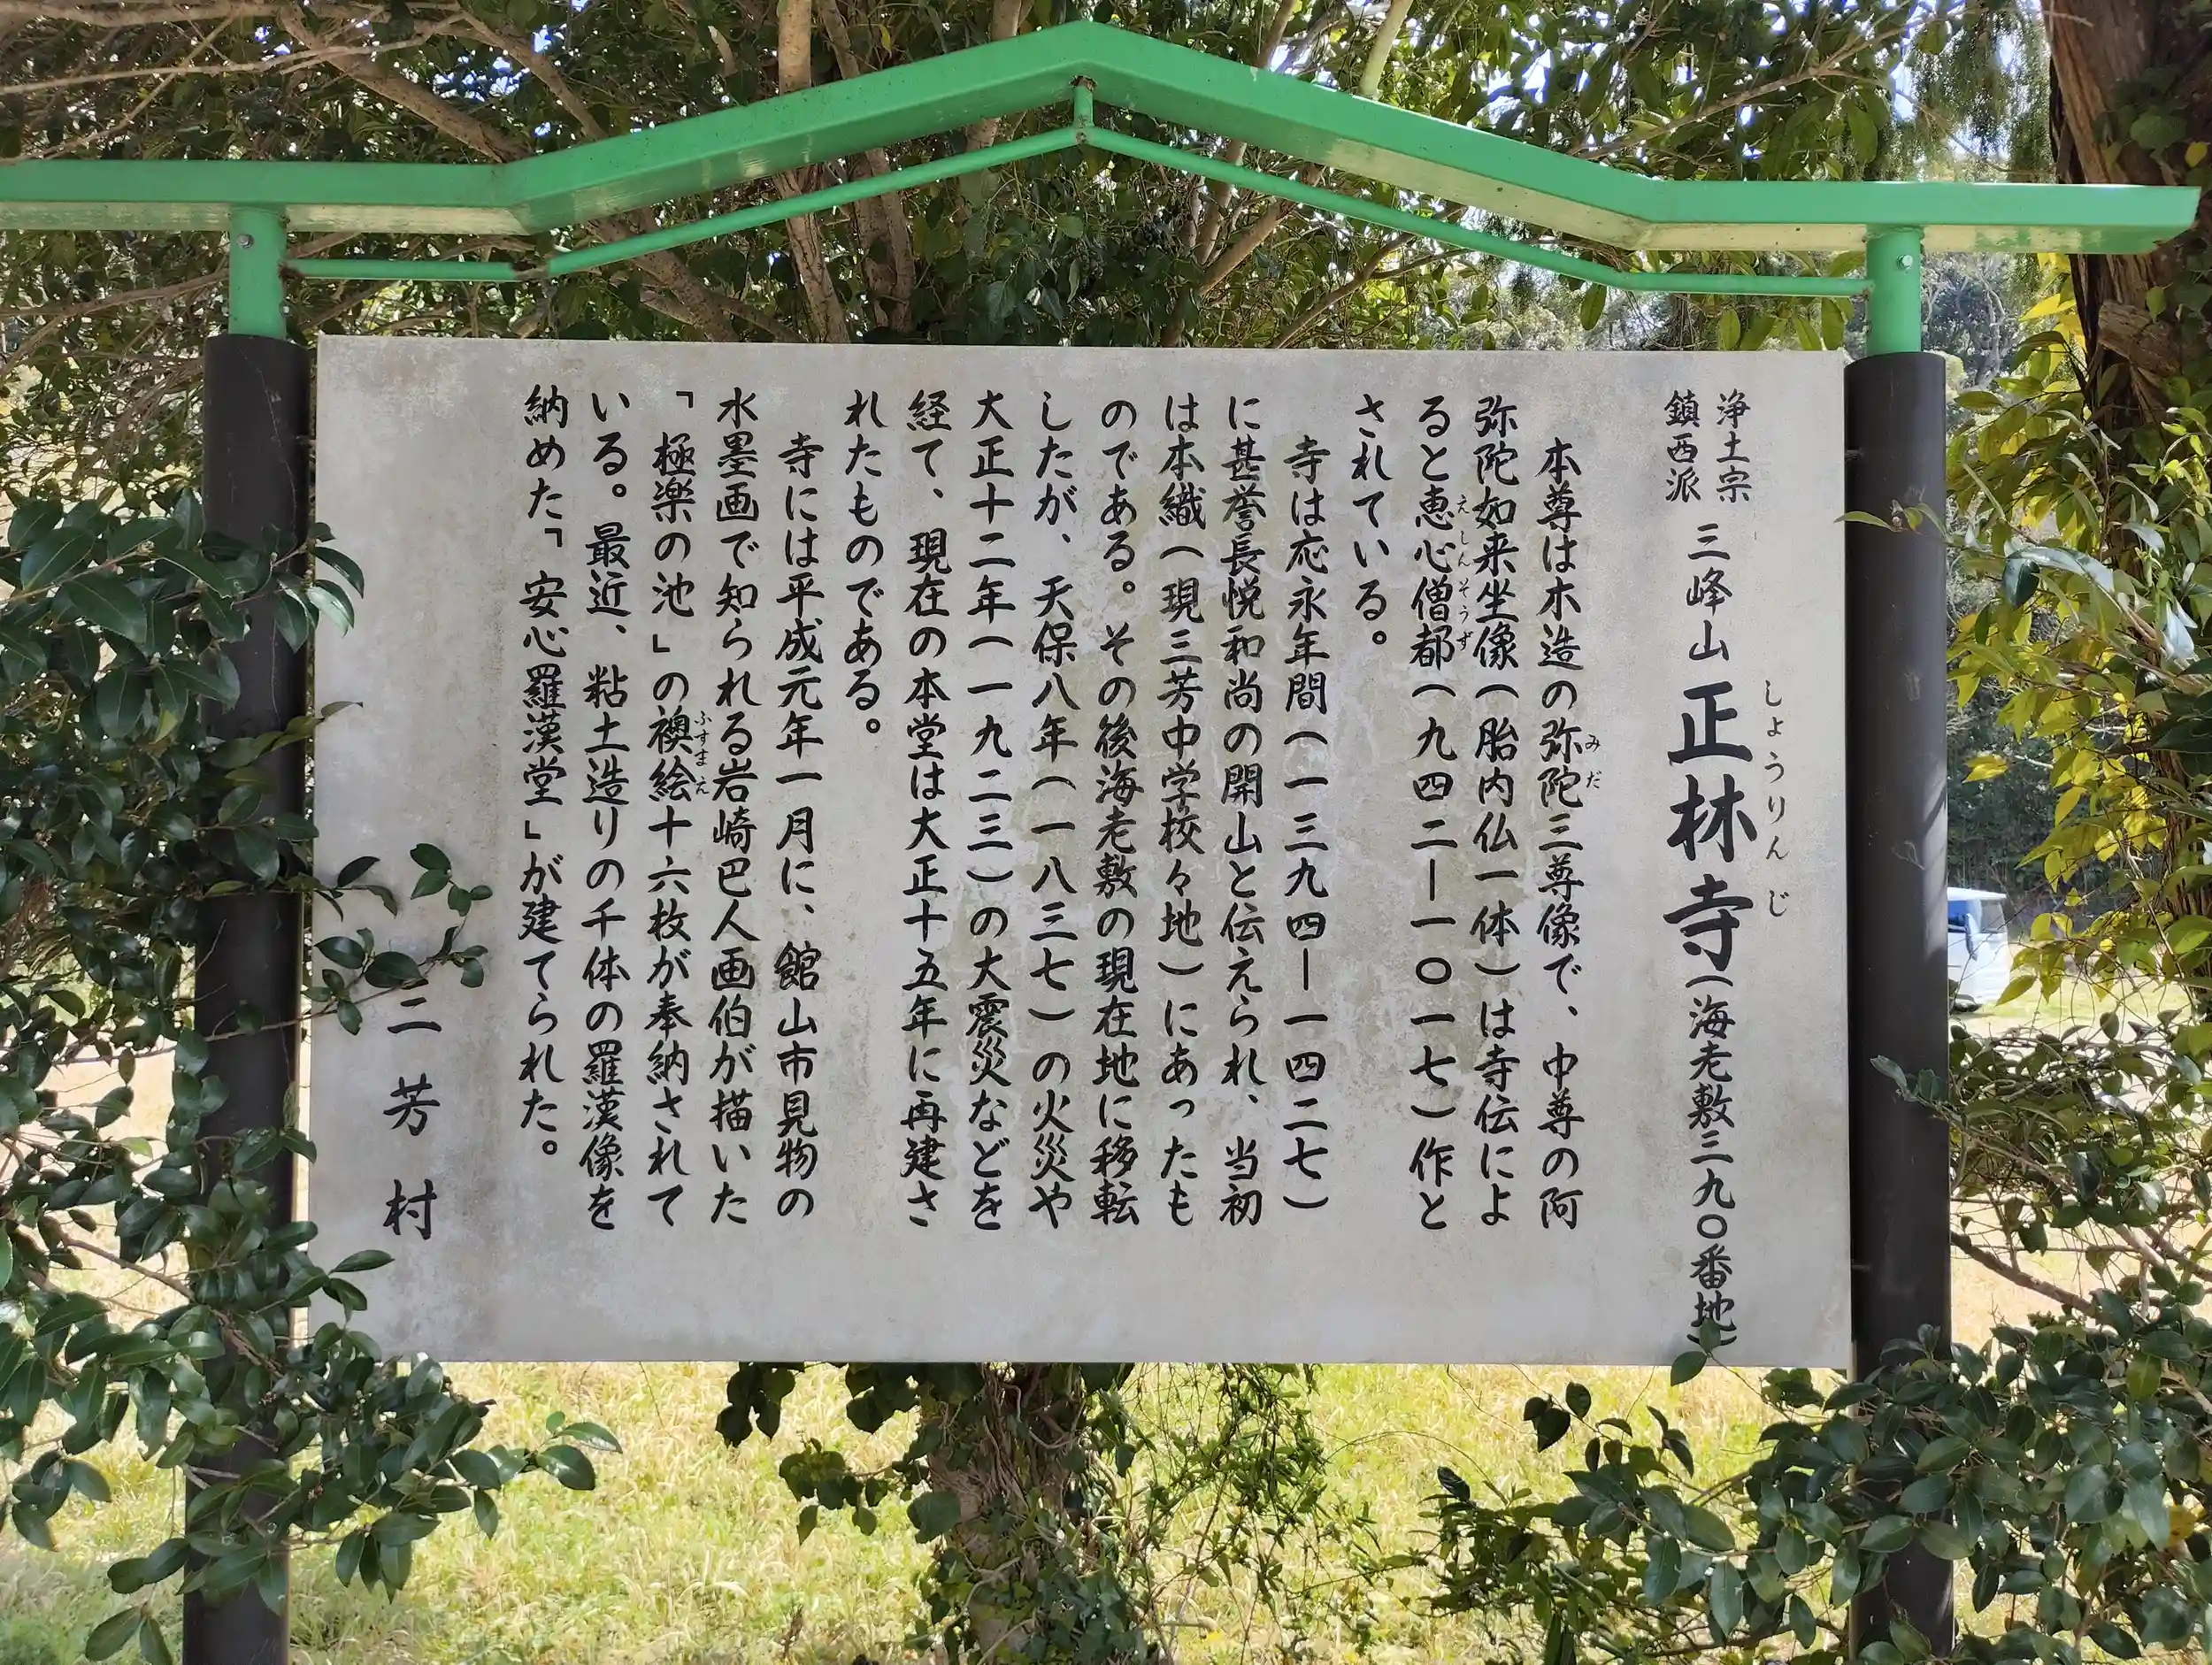 浄土宗
鎮西派
三峰山 正林寺（海老敷三九〇番地）
しょうりんじ
本尊は木造の弥陀三尊像で、中尊の阿
みだ
弥陀如来坐像（胎内仏一体）は寺伝によ
ると恵心僧都（九四二―一〇一七）作と
えしんそうず
されている。
寺は応永年間（一三九四―一四二七）
に甚誉長悦和尚の開山と伝えられ、当初
は本織（現三芳中学校々地）にあったも
のである。その後海老敷の現在地に移転
したが、天保八年（一八三七）の火災や
大正十二年（一九二三）の大震災などを
経て、現在の本堂は大正十五年に再建さ
れたものである。
寺には平成元年一月に、館山市見物の
水墨画で知られる岩崎巴人画伯が描いた
「極楽の池」の襖絵十六枚が奉納されて
ふすまえ
いる。最近、粘土造りの千体の羅漢像を
納めた「安心羅漢堂」が建てられた。
三芳村